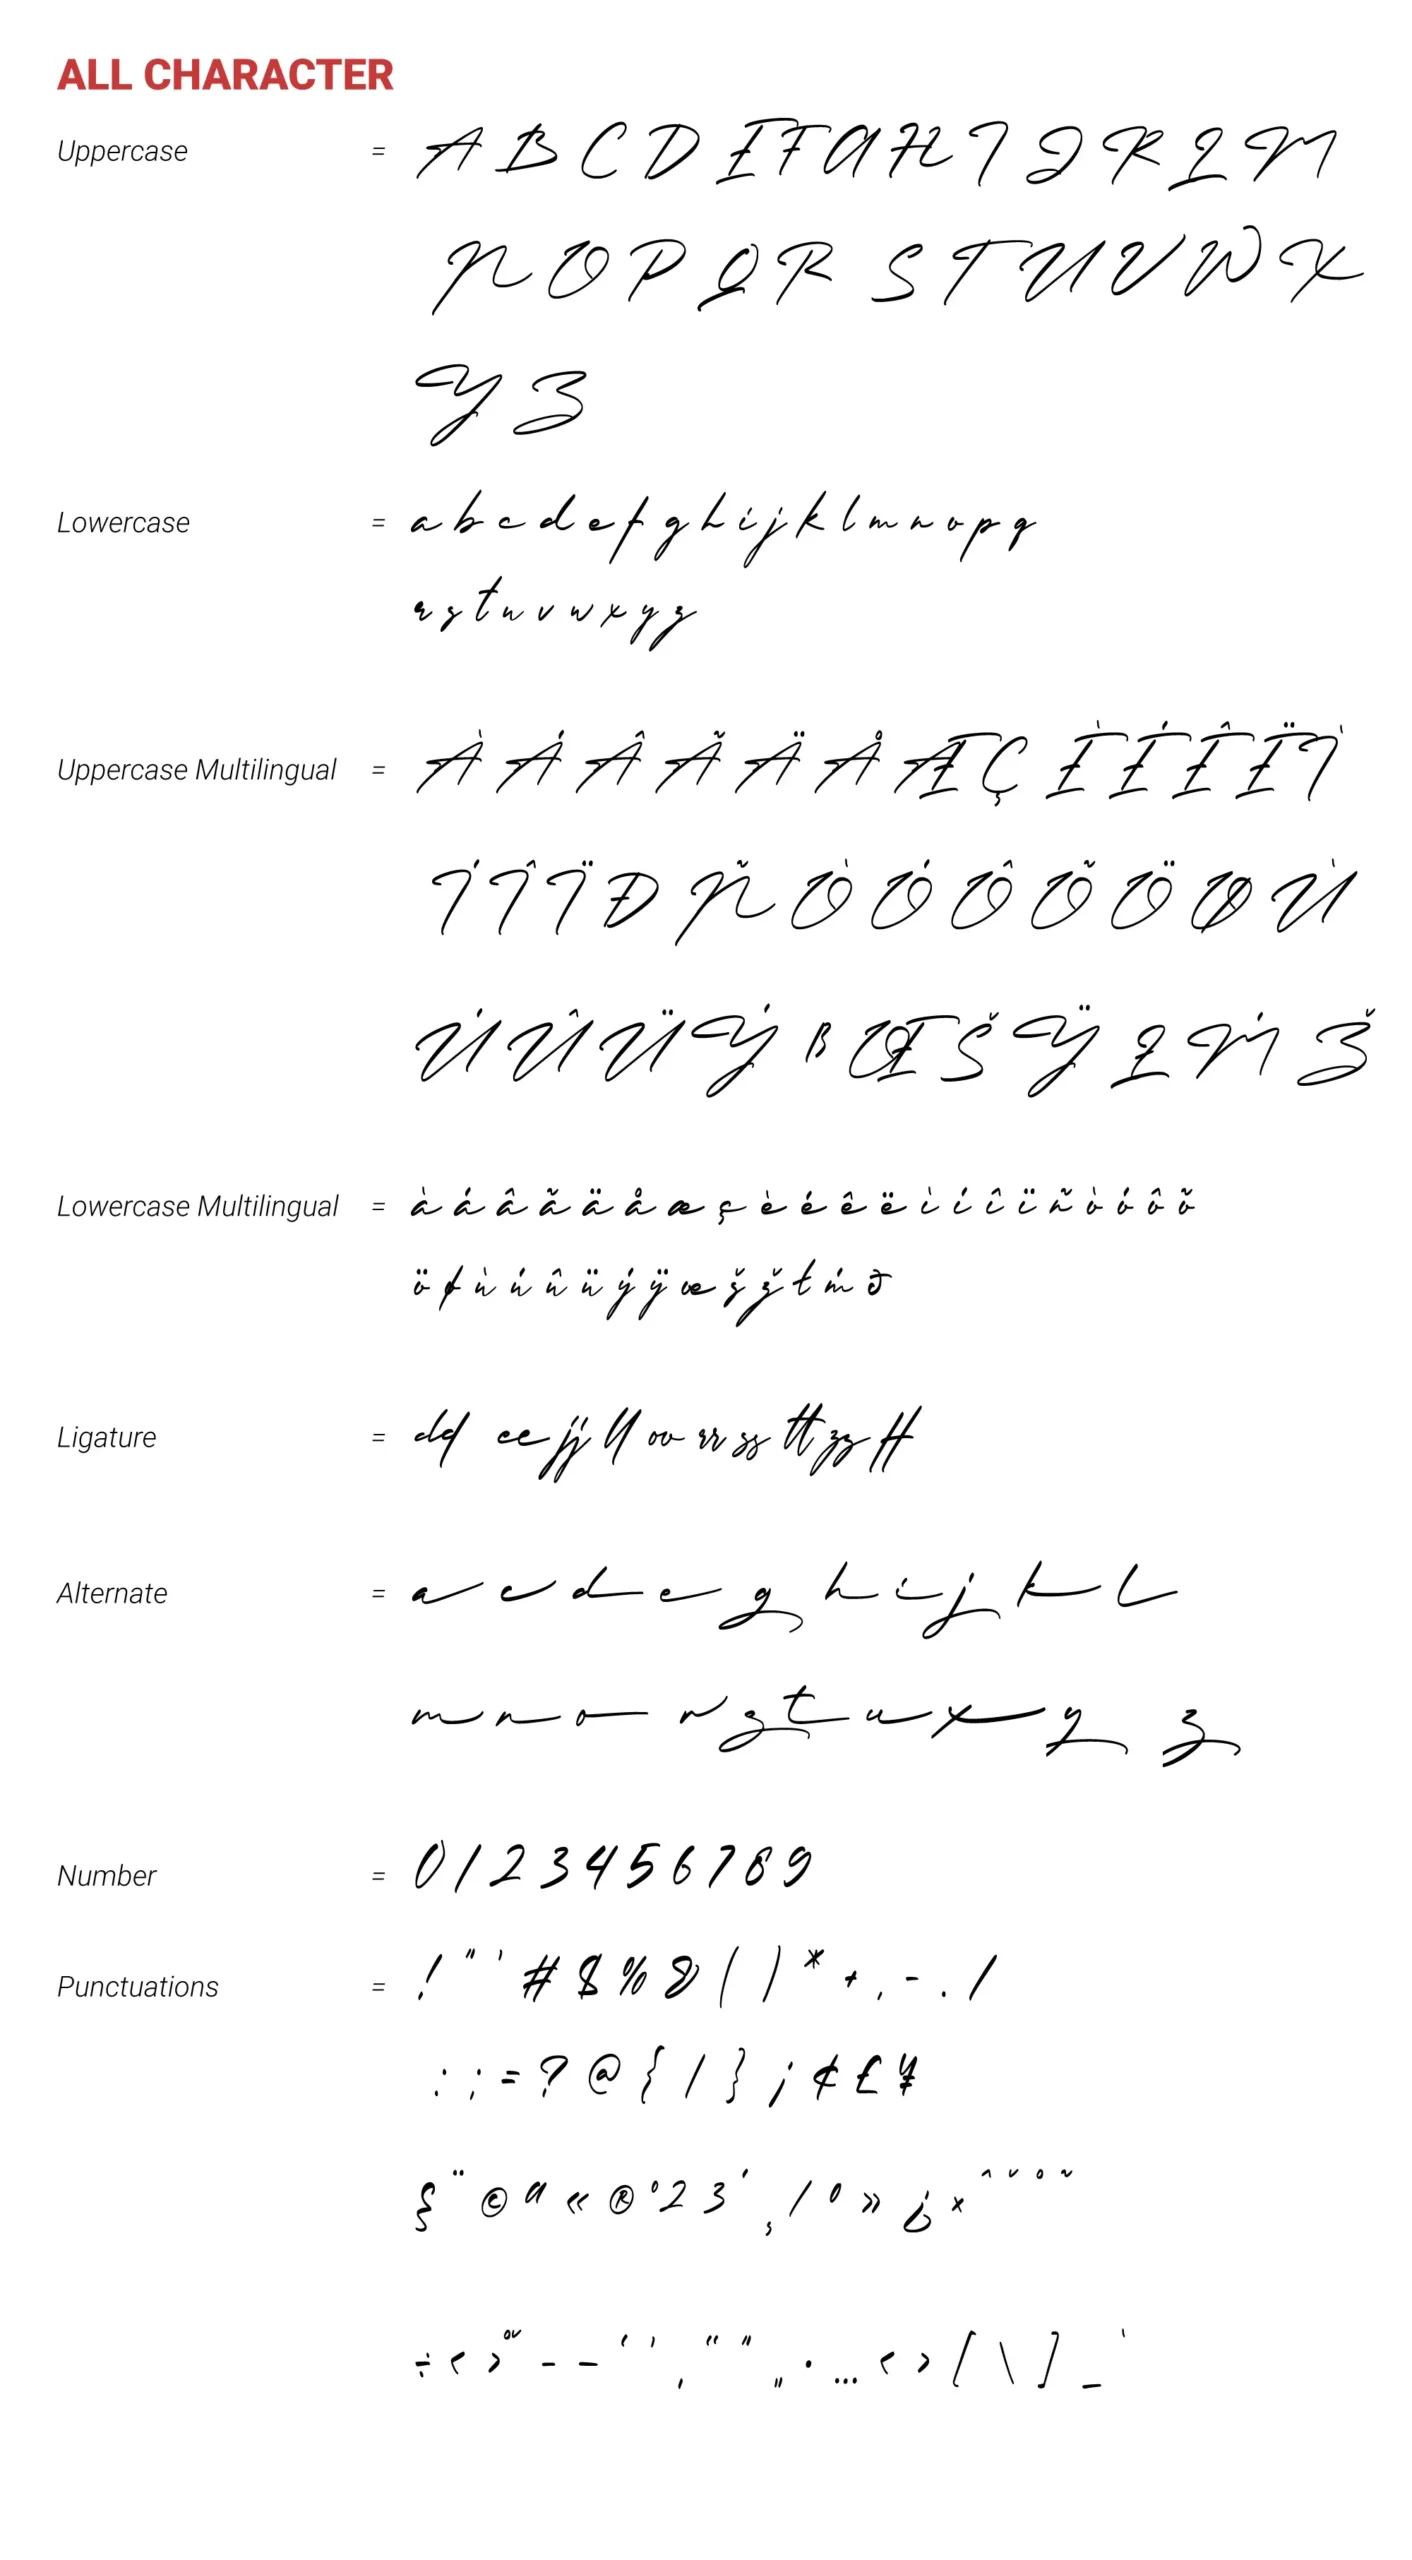 ALL CHARACTER
Uppercase = A B C D E F G H I J K L M
N O P Q R S T U V W X
Y Z
Lowercase = a b c d e f g h i j k l m n o p q
r s t u v w x y z
Uppercase Multilingual = À Á Â Ã Ä Å Æ Ç È É Ê Ë Ì
Í Î Ï Ð Ñ Ò Ó Ô Õ Ö Ø Ù
Ú Û Ü Ý ß Œ Š Ÿ Ł Ḿ Ž
Lowercase Multilingual = à á â ã ä å æ ç è é ê ë ì í î ï ñ ò ó ô õ
ö ø ù ú û ü ý ÿ œ š ž ł ḿ ð
Ligature = dd ee jj ll oo rr ss tt zz ff
Alternate = a c d e g h i j k l
m n o r s t u x y z
Number = 0 1 2 3 4 5 6 7 8 9
Punctuations = ! " ' # $ % & ( ) * + , - . /
: ; = ? @ { | } ¡ ¢ £ ¥
§ ¨ © ª « ® ° 2 3 ´ ¸ / º » ¿ × ˆ ˇ ˚ ˜
÷ < > – — ‘ ’ ‚ “ ” „ • … ‹ › [ \ ] _ `